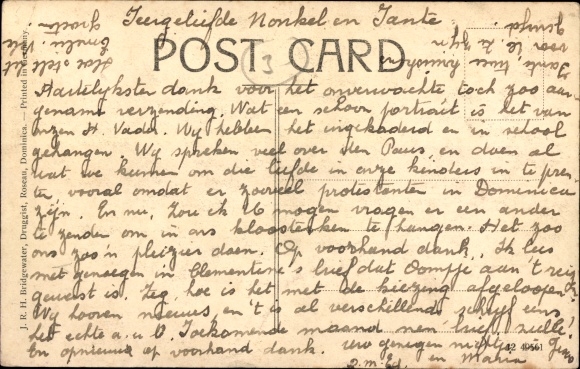 Teergeliefde Nonkel en Tante
POST CARD
3
Hartelykste dank voor het onverwachte toch zoo aan-
gename verzending. Wat een schoon portrait is het van
onzen H. Vader. Wy hebben het ingekaderd en in school
gehangen. Wy spreken veel over den Paus, en doen al
wat we kunnen om die liefde in onze kinders in te pren
ten, vooral omdat er zooveel protestanten in Dominica
zijn. En nu, zou ik U mogen vragen er een ander
te zenden om in ons kloosterken te hangen. Het zoo
ons zoo'n pleizier doen. Op voorhand dank. Ik lees
met genoegen in Clementine's brief dat Oompje aan 't
geweest is. Zeg, hoe is het met de kiezing afgeloopen?
Wy hooren nieuws en 't is al verschillend, schryf eens
het echte a. u. b. Toekomende maand nen brief, zulle!
En opnieuw op voorhand dank. uw genegen nichtje
en Maria
J. R. H. Bridgewater, Druggist, Roseau, Dominica. — Printed in Germany.